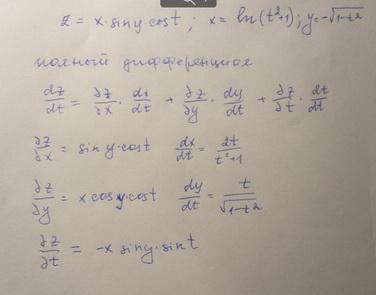 z = x·siny·cost; x = ln(t²+1); y = -√1-t²
полный дифференциал
dz/dt = ∂z/∂x · dx/dt + ∂z/∂y · dy/dt + ∂z/∂t · dt/dt
∂z/∂x = siny·cost dx/dt = 2t/t²+1
∂z/∂y = x cosy·cost dy/dt = t/√1-t²
∂z/∂t = -x siny·sint